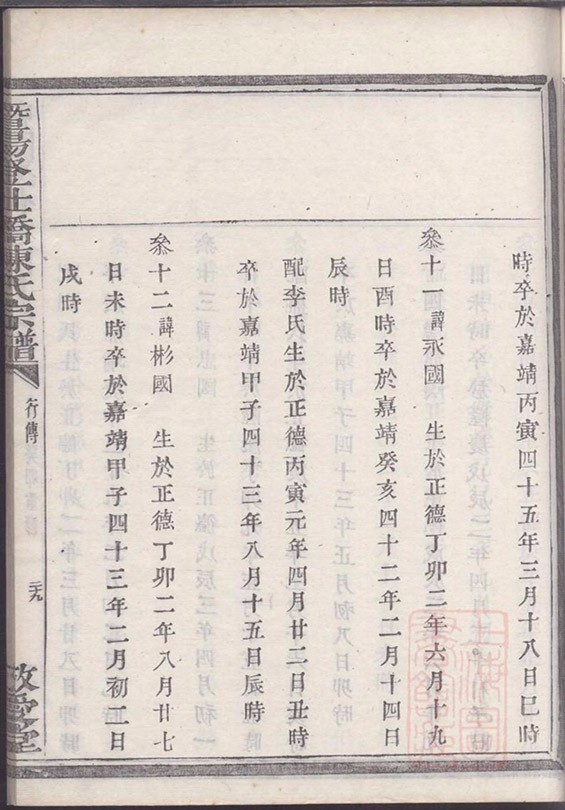 時卒於嘉靖丙寅四十五年三月十八日巳時
叅十一諱永國 生於正德丁卯二年六月十九
日酉時卒於嘉靖癸亥四十二年二月十四日
辰時
配李氏生於正德丙寅元年四月廿二日丑時
卒於嘉靖甲子四十三年八月十五日辰時
叅十二諱彬國 生於正德丁卯二年八月廿七
日未時卒於嘉靖甲子四十三年二月初二日
戌時
暨陽 仕橋陳氏宗譜
行傳
二九
敬愛堂